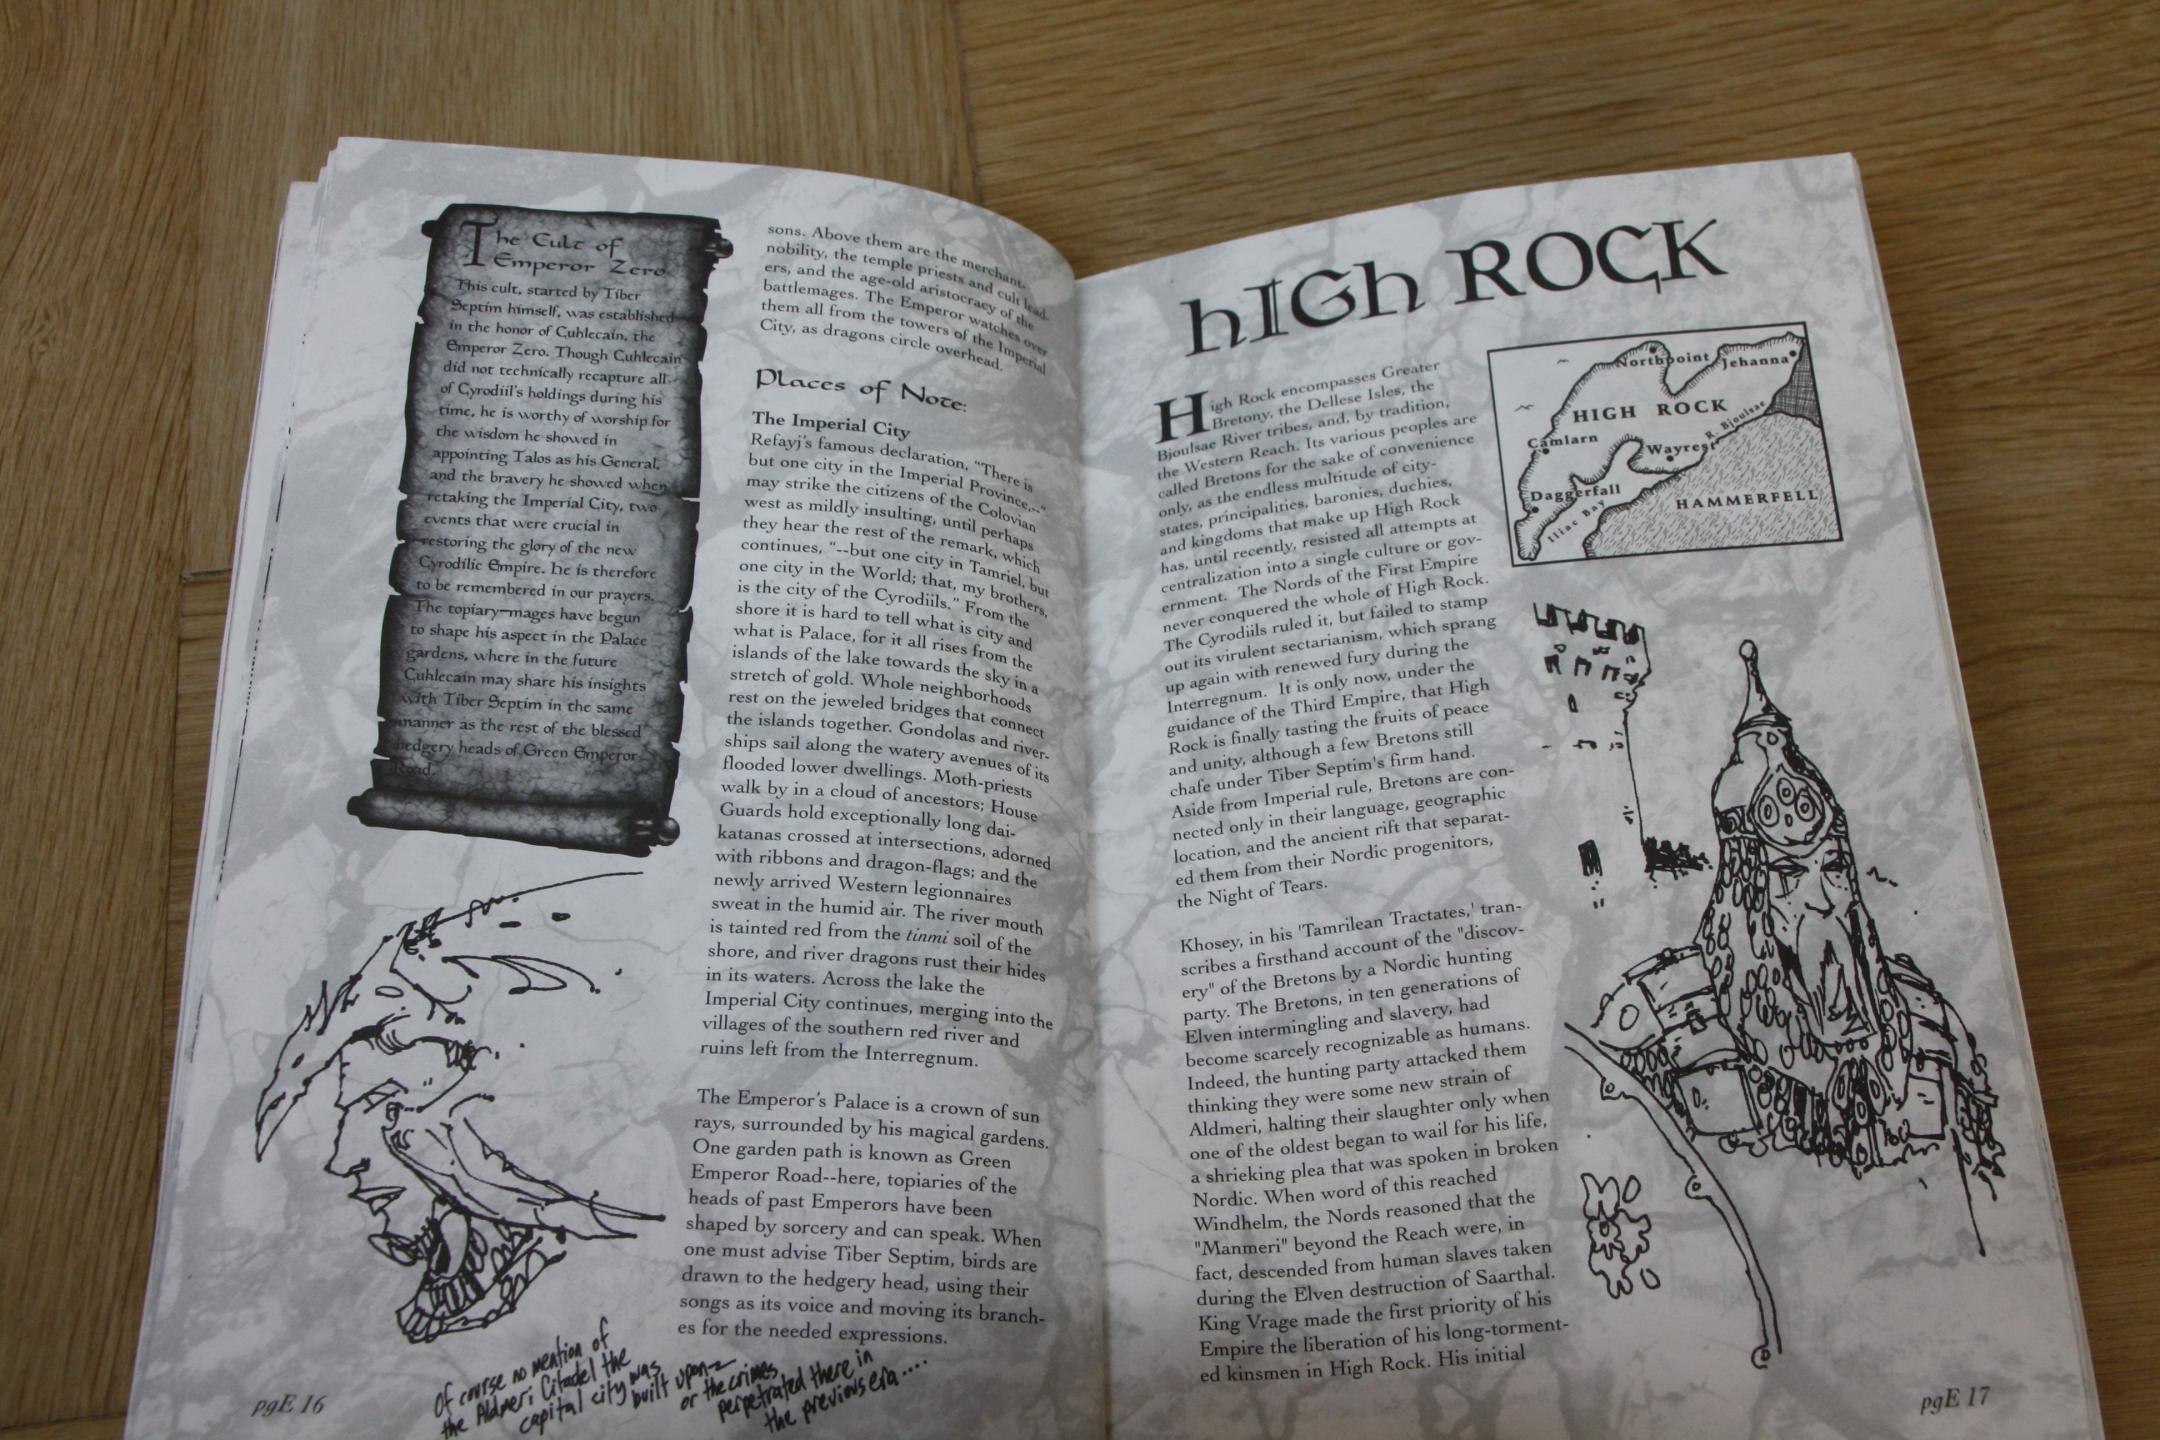 The Cult of
Emperor Zero
This cult, started by Tiber
Septim himself, was established
in the honor of Cuhlecain, the
Emperor Zero. Though Cuhlecain
did not technically recapture all
of Cyrodiil's holdings during his
time, he is worthy of worship for
the wisdom he showed in
appointing Talos as his General,
and the bravery he showed when
retaking the Imperial City, two
events that were crucial in
restoring the glory of the new
Cyrodilic Empire. He is therefore
to be remembered in our prayers.
The topiary-mages have begun
to shape his aspect in the Palace
gardens, where in the future
Cuhlecain may share his insights
with Tiber Septim in the same
manner as the rest of the blessed
hedgery heads of Green Emperor
Road.
Of course no mention of
the Aldmeri Citadel the
capital city was
built upon--
or the crimes
perpetrated there in
the previous era....
pgE 16
sons. Above them are the merchant-
nobility, the temple priests and cult lead-
ers, and the age-old aristocracy of the
battlemages. The Emperor watches over
them all from the towers of the Imperial
City, as dragons circle overhead.
Places of Note:
The Imperial City
Refayj's famous declaration, "There is
but one city in the Imperial Province,--"
may strike the citizens of the Colovian
west as mildly insulting, until perhaps
they hear the rest of the remark, which
continues, "--but one city in Tamriel, but
one city in the World; that, my brothers,
is the city of the Cyrodiils." From the
shore it is hard to tell what is city and
what is Palace, for it all rises from the
islands of the lake towards the sky in a
stretch of gold. Whole neighborhoods
rest on the jeweled bridges that connect
the islands together. Gondolas and river-
ships sail along the watery avenues of its
flooded lower dwellings. Moth-priests
walk by in a cloud of ancestors; House
Guards hold exceptionally long dai-
katanas crossed at intersections, adorned
with ribbons and dragon-flags; and the
newly arrived Western legionnaires
sweat in the humid air. The river mouth
is tainted red from the tinmi soil of the
shore, and river dragons rust their hides
in its waters. Across the lake the
Imperial City continues, merging into the
villages of the southern red river and
ruins left from the Interregnum.
The Emperor's Palace is a crown of sun
rays, surrounded by his magical gardens.
One garden path is known as Green
Emperor Road--here, topiaries of the
heads of past Emperors have been
shaped by sorcery and can speak. When
one must advise Tiber Septim, birds are
drawn to the hedgery head, using their
songs as its voice and moving its branch-
es for the needed expressions.
HIGH ROCK
High Rock encompasses Greater
Bretony, the Dellese Isles, the
Bjoulsae River tribes, and, by tradition,
the Western Reach. Its various peoples are
called Bretons for the sake of convenience
only, as the endless multitude of city-
states, principalities, baronies, duchies,
and kingdoms that make up High Rock
has, until recently, resisted all attempts at
centralization into a single culture or gov-
ernment. The Nords of the First Empire
never conquered the whole of High Rock.
The Cyrodiils ruled it, but failed to stamp
out its virulent sectarianism, which sprang
up again with renewed fury during the
Interregnum. It is only now, under the
guidance of the Third Empire, that High
Rock is finally tasting the fruits of peace
and unity, although a few Bretons still
chafe under Tiber Septim's firm hand.
Aside from Imperial rule, Bretons are con-
nected only in their language, geographic
location, and the ancient rift that separat-
ed them from their Nordic progenitors,
the Night of Tears.
Khosey, in his 'Tamrilean Tractates,' tran-
scribes a firsthand account of the "discov-
ery" of the Bretons by a Nordic hunting
party. The Bretons, in ten generations of
Elven intermingling and slavery, had
become scarcely recognizable as humans.
Indeed, the hunting party attacked them
thinking they were some new strain of
Aldmeri, halting their slaughter only when
one of the oldest began to wail for his life,
a shrieking plea that was spoken in broken
Nordic. When word of this reached
Windhelm, the Nords reasoned that the
"Manmeri" beyond the Reach were, in
fact, descended from human slaves taken
during the Elven destruction of Saarthal.
King Vrage made the first priority of his
Empire the liberation of his long-torment-
ed kinsmen in High Rock. His initial
Northpoint
Jehanna
HIGH ROCK
R. Bjoulsae
Camlarn
Wayrest
Daggerfall
Iliac Bay
HAMMERFELL
pgE 17